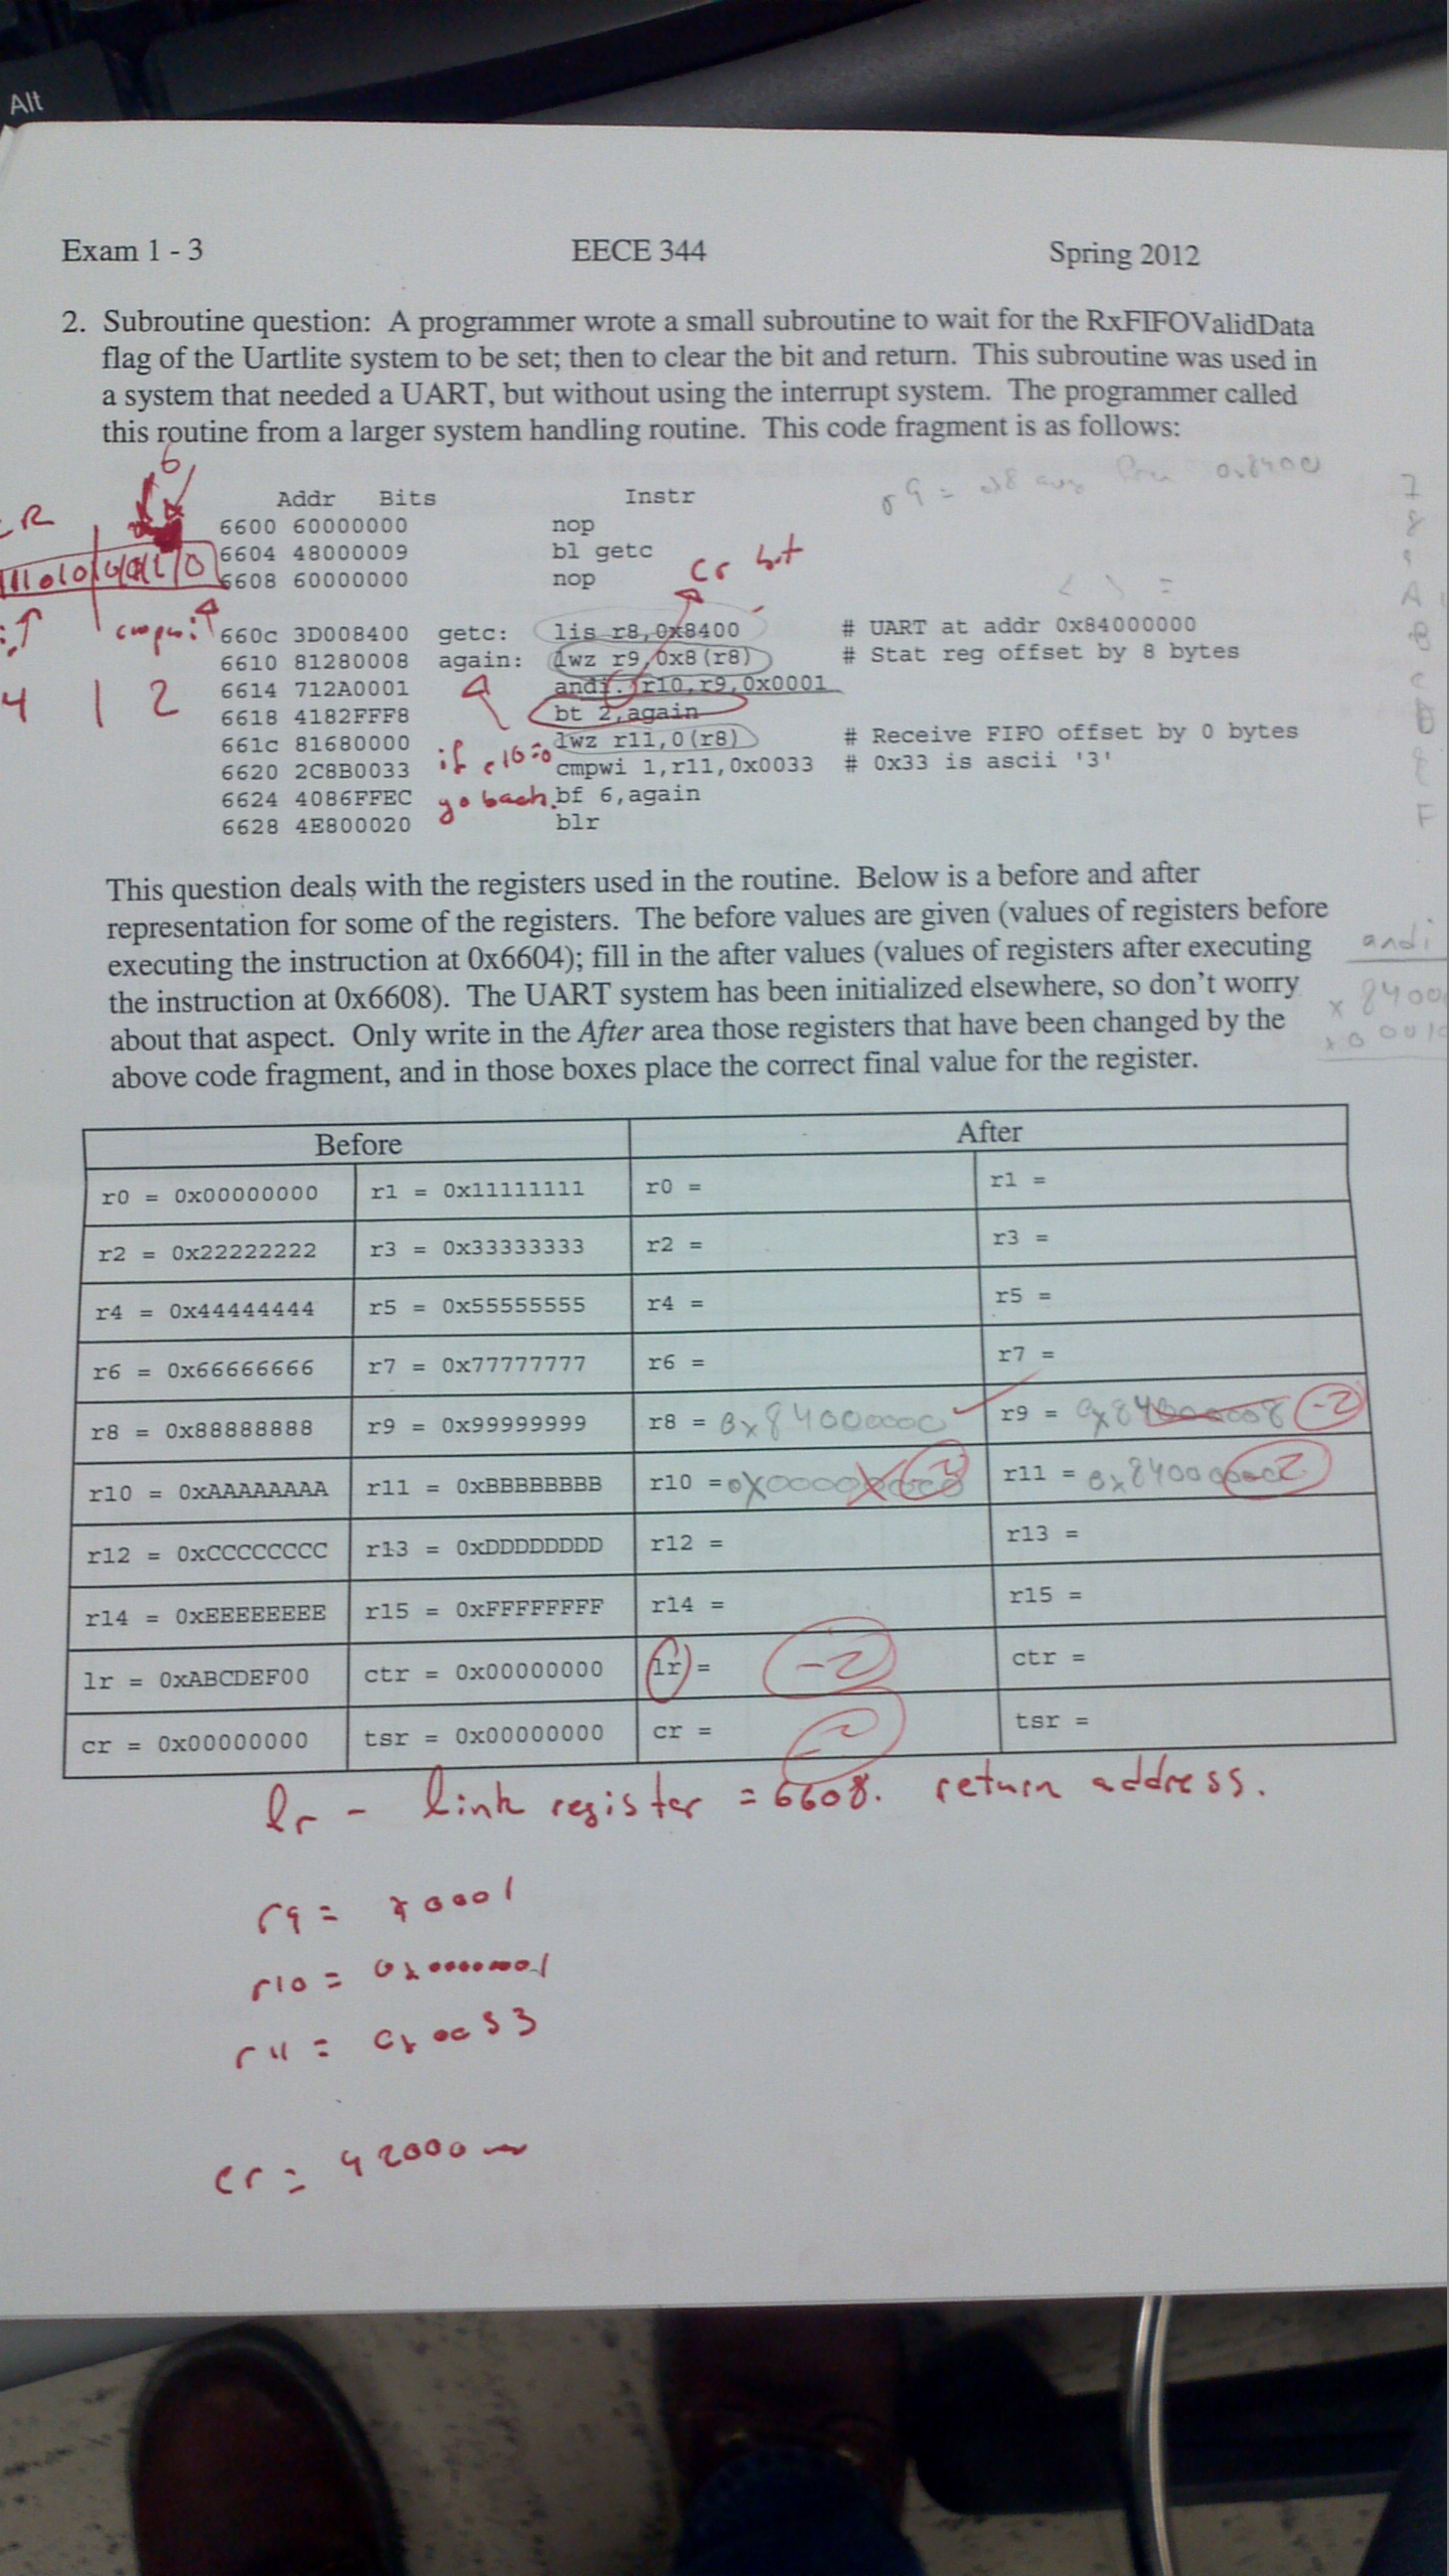 Alt
Exam 1 - 3 EECE 344 Spring 2012
2. Subroutine question: A programmer wrote a small subroutine to wait for the RxFIFOValidData
flag of the Uartlite system to be set; then to clear the bit and return. This subroutine was used in
a system that needed a UART, but without using the interrupt system. The programmer called
this routine from a larger system handling routine. This code fragment is as follows:
6
r9 = 0x8400
Addr Bits Instr
6600 60000000 nop
6604 48000009 bl getc
6608 60000000 nop
cr bit
< > =
660c 3D008400 getc: lis r8,0x8400 # UART at addr 0x84000000
6610 81280008 again: lwz r9,0x8(r8) # Stat reg offset by 8 bytes
6614 712A0001 andi. r10,r9,0x0001
6618 4182FFF8 bt 2,again
661c 81680000 lwz r11,0(r8) # Receive FIFO offset by 0 bytes
6620 2C8B0033 cmpwi 1,r11,0x0033 # 0x33 is ascii '3'
6624 4086FFEC bf 6,again
6628 4E800020 blr
4 | 2
if
go back.
7
8
9
A
B
C
F
This question deals with the registers used in the routine. Below is a before and after
representation for some of the registers. The before values are given (values of registers before
executing the instruction at 0x6604); fill in the after values (values of registers after executing
the instruction at 0x6608). The UART system has been initialized elsewhere, so don't worry
about that aspect. Only write in the After area those registers that have been changed by the
above code fragment, and in those boxes place the correct final value for the register.
andi
Before After
r0 = 0x00000000 r1 = 0x11111111 r0 = r1 =
r2 = 0x22222222 r3 = 0x33333333 r2 = r3 =
r4 = 0x44444444 r5 = 0x55555555 r4 = r5 =
r6 = 0x66666666 r7 = 0x77777777 r6 = r7 =
r8 = 0x88888888 r9 = 0x99999999 r8 = 0x84000000 r9 = 0x84000008 -2
r10 = 0xAAAAAAAA r11 = 0xBBBBBBBB r10 = 0x00000000 -2 r11 = 0x84000000 -2
r12 = 0xCCCCCCCC r13 = 0xDDDDDDDD r12 = r13 =
r14 = 0xEEEEEEEE r15 = 0xFFFFFFFF r14 = r15 =
lr = 0xABCDEF00 ctr = 0x00000000 lr = -2 ctr =
cr = 0x00000000 tsr = 0x00000000 cr = -2 tsr =
lr - link register = 6608. return address.
r9 = x0001
r10 = 0x00000001
r11 = 0x0033
cr = 42000